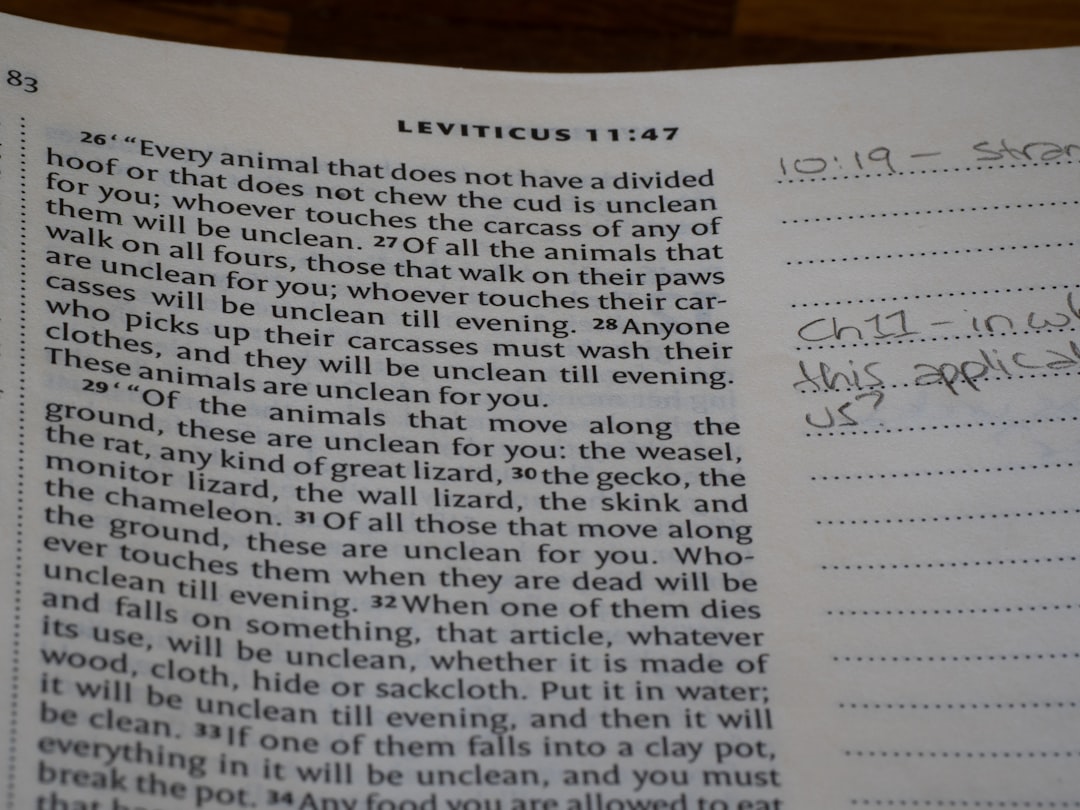 83
LEVITICUS 11:47
26‘ “Every animal that does not have a divided
hoof or that does not chew the cud is unclean
for you; whoever touches the carcass of any of
them will be unclean. 27 Of all the animals that
walk on all fours, those that walk on their paws
are unclean for you; whoever touches their car-
casses will be unclean till evening. 28 Anyone
who picks up their carcasses must wash their
clothes, and they will be unclean till evening.
These animals are unclean for you.
29‘ “Of the animals that move along the
ground, these are unclean for you: the weasel,
the rat, any kind of great lizard, 30 the gecko, the
monitor lizard, the wall lizard, the skink and
the chameleon. 31 Of all those that move along
the ground, these are unclean for you. Who-
ever touches them when they are dead will be
unclean till evening. 32 When one of them dies
and falls on something, that article, whatever
its use, will be unclean, whether it is made of
wood, cloth, hide or sackcloth. Put it in water;
it will be unclean till evening, and then it will
be clean. 33 If one of them falls into a clay pot,
everything in it will be unclean, and you must
break the pot. 34 Any food you are allowed to eat
10:19 –
Ch 11 – in
this
us?